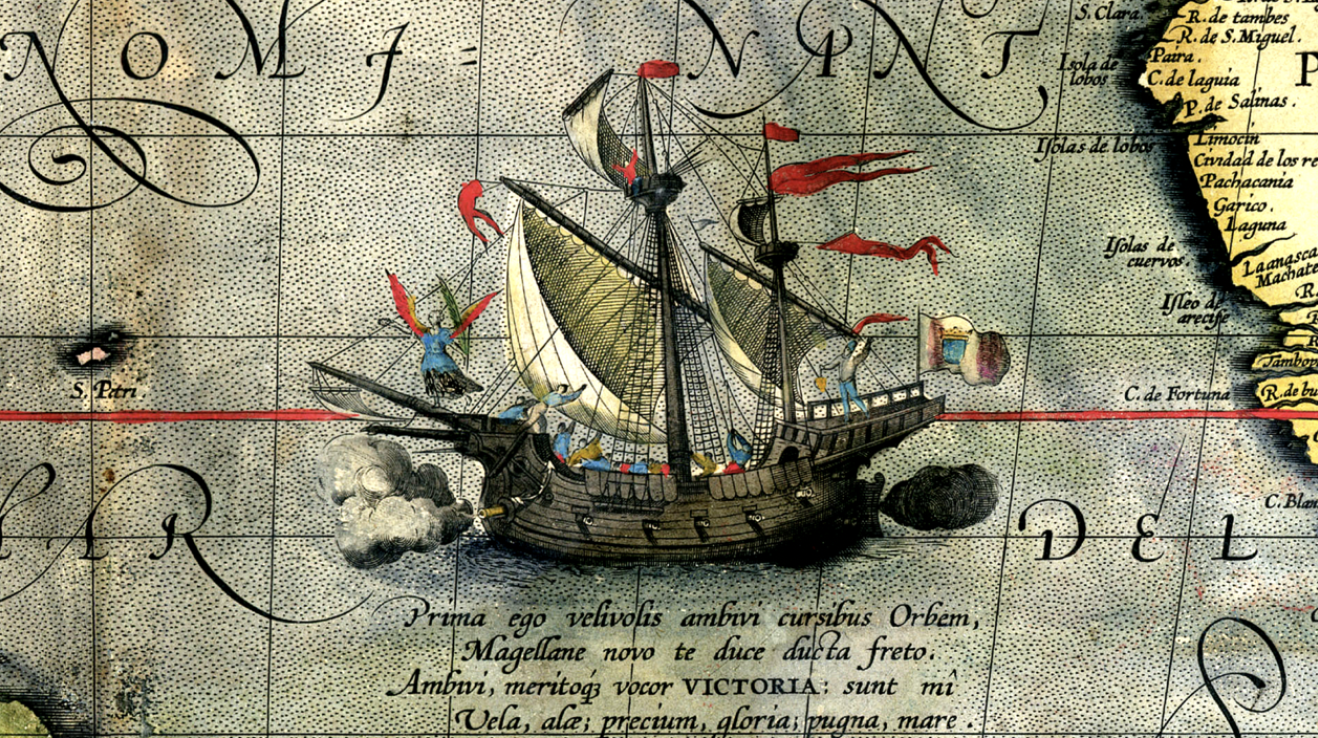 NOMI= NANT,
S. Clara.
R. de tambes
R. de S. Miguel.
Isola de
lobos
Paira.
C. de laguia
P
P. de Salinas.
Limocin
Isolas de lobos
Cividad de los re
Pachacania
Garico.
Laguna
Isolas de
cuervos.
Laanasca
Machate
R.
Isleo de
arecife
S. Petri
Tambop
C. de Fortuna
R. de bu
C. Blan
AR DEL
Prima ego velivolis ambivi cursibus Orbem,
Magellane novo te duce ducta freto.
Ambivi, meritoq₃ vocor VICTORIA: sunt mî
Vela, alæ; precium, gloria; pugna, mare.